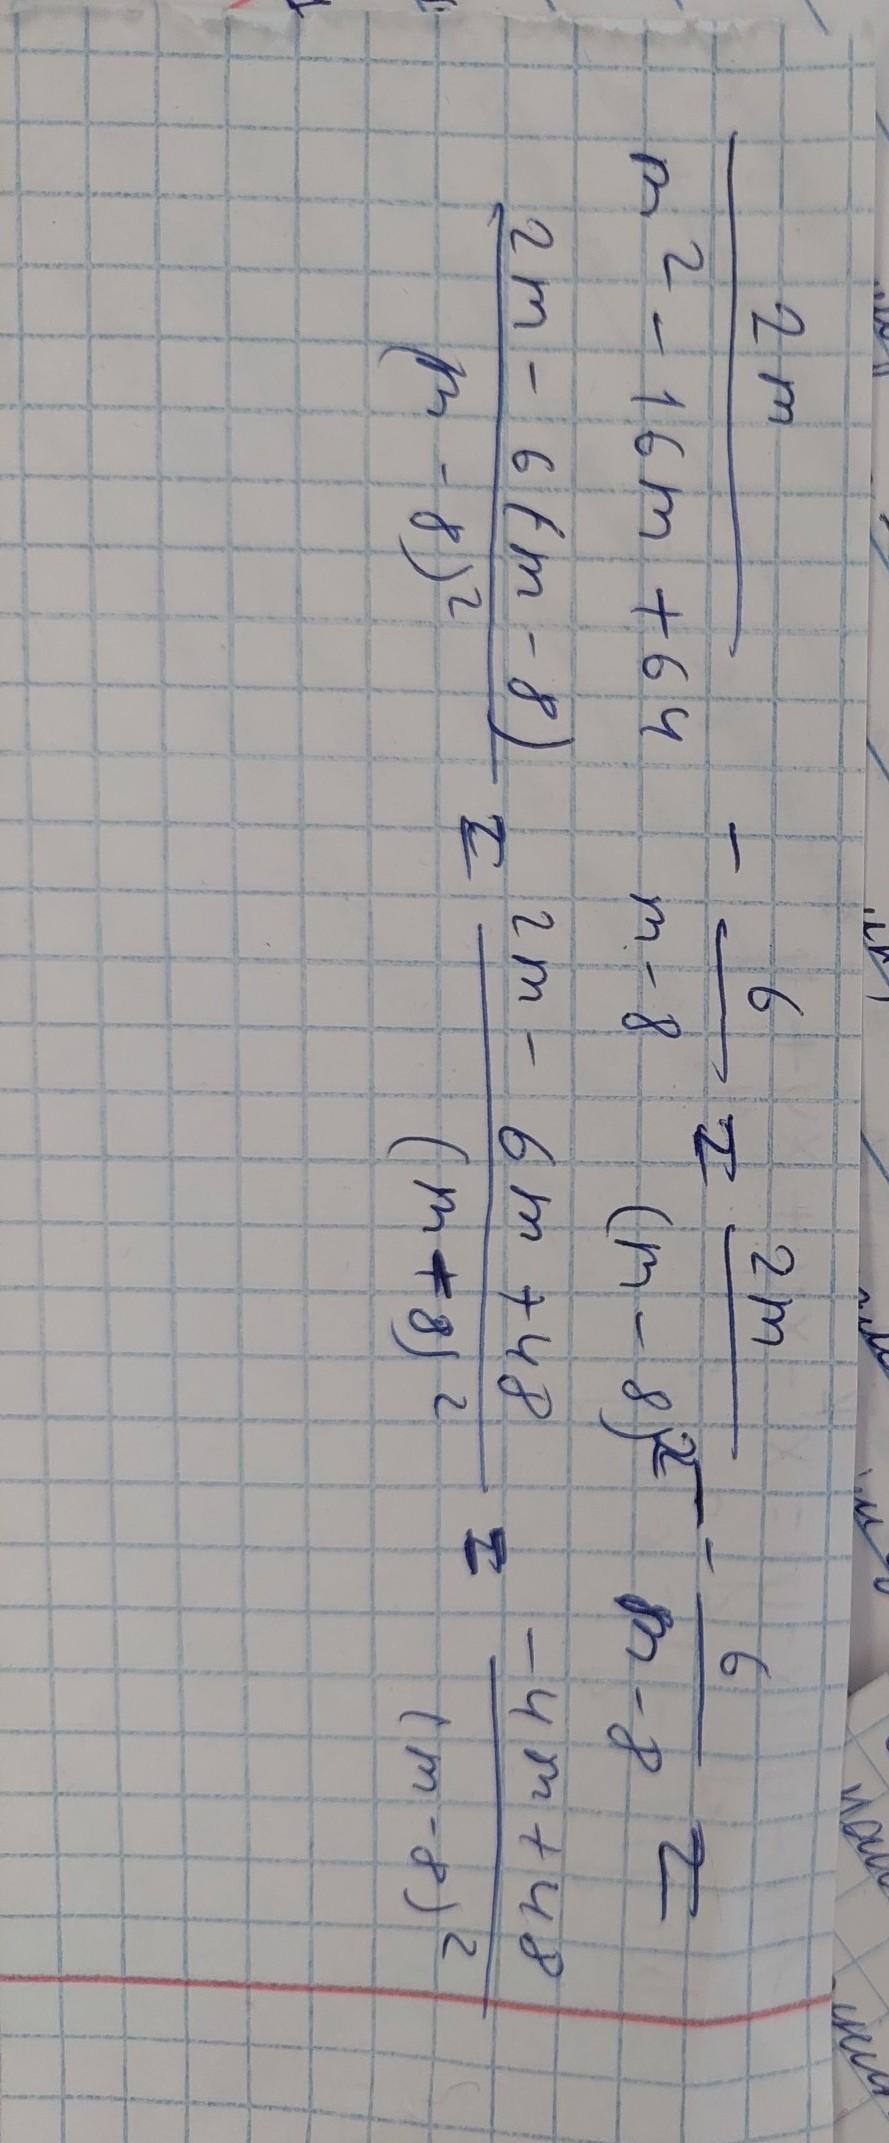 2m/(m² - 16m + 64) - 6/(m - 8) = 2m/(m - 8)² - 6/(m - 8) =
(2m - 6(m - 8))/(m - 8)² = (2m - 6m + 48)/(m - 8)² = (-4m + 48)/(m - 8)²